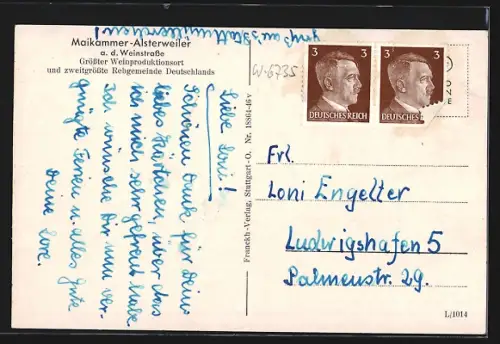 Maikammer-Alsterweiler
a. d. Weinstraße
Größter Weinproduktionsort
und zweitgrößte Rebgemeinde Deutschlands
W-6735
3 3
DEUTSCHES REICH
3
DEUTSCHES
Liebe Loni!
Schönen Dank für Deine
liebes Kärtchen, über das
ich mich sehr gefreut habe.
Ich wünsche Dir nun ver-
gnügte Ferien u. alles Gute
Deine Lore.
Franckh-Verlag, Stuttgart-O. Nr. 18864-46 v
Frl.
Loni Engelter
Ludwigshafen 5
Palmenstr. 29.
L/1014